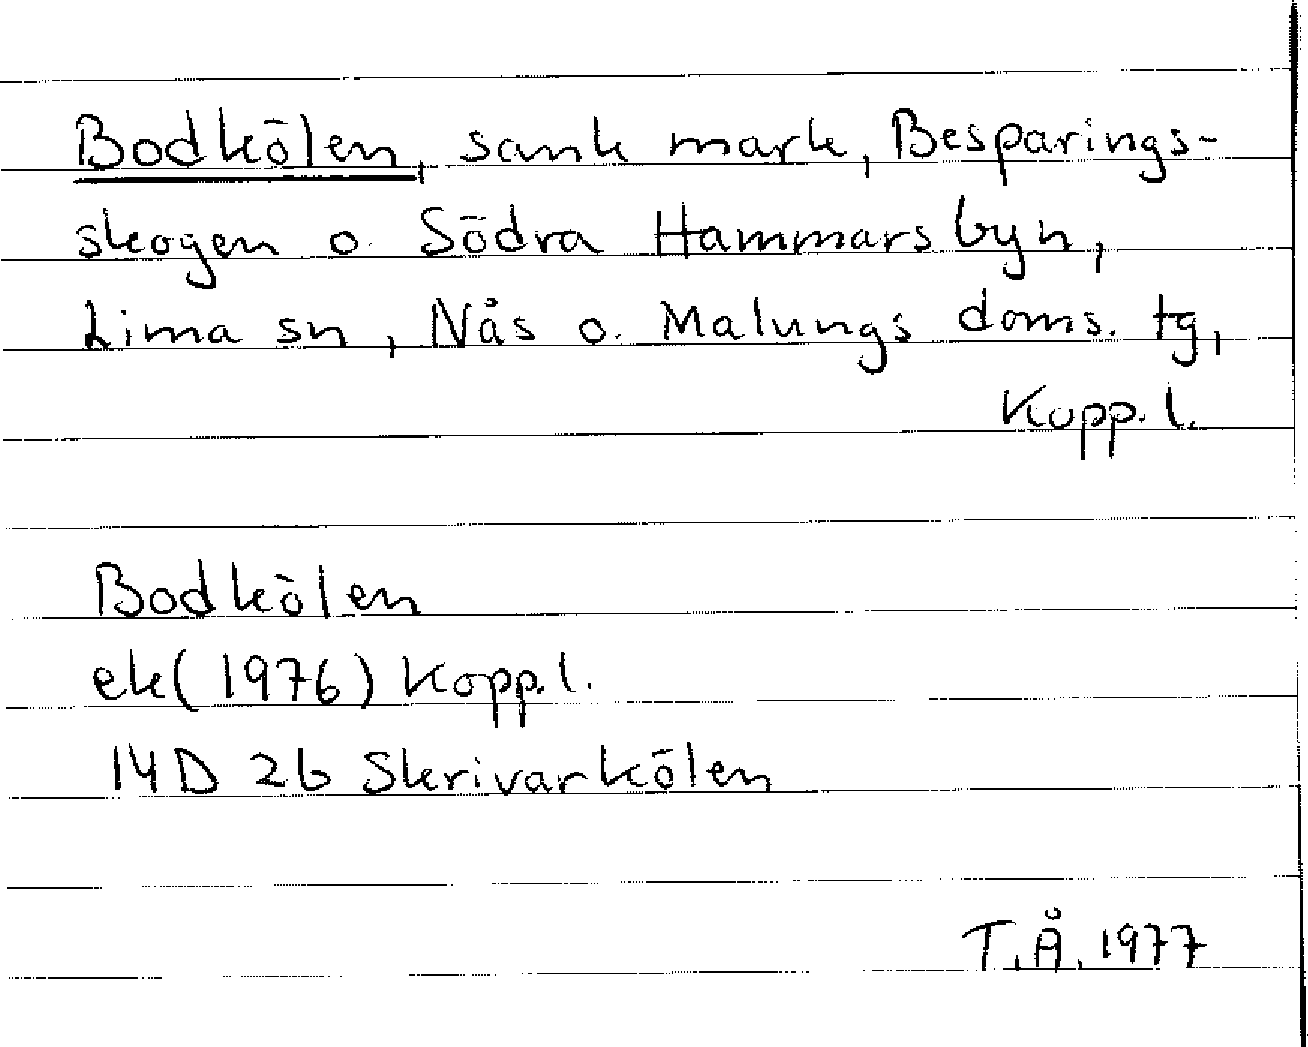 Bodkölen, sank mark, Besparings-
skogen o. Södra Hammarsbyn,
Lima sn, Nås o. Malungs doms. tg,
Kopp. l.
Bodkölen
ek (1976) Kopp. l.
14D 2b Skrivarkölen
T.Å. 1977